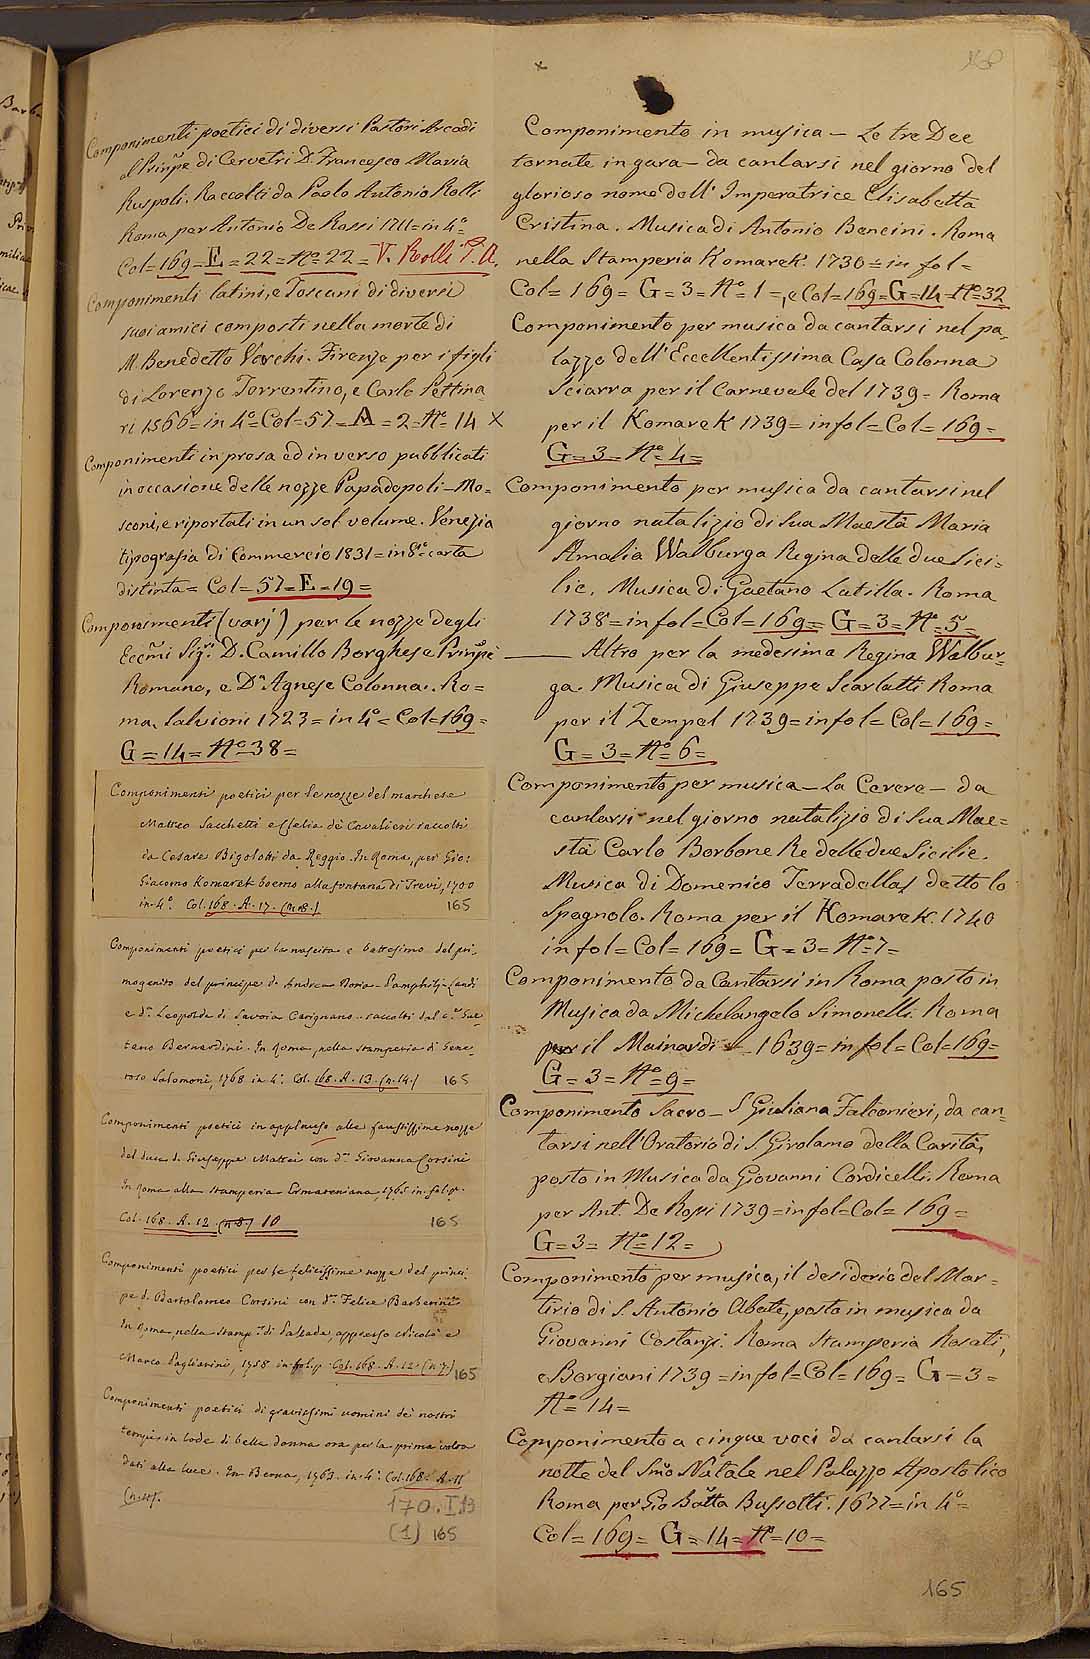 Componimenti poetici di diversi Pastori Arcadi
al Prinpe di Cervetri D. Francesco Maria
Ruspoli. Raccolti da Paolo Antonio Rolli
Roma per Antonio De Rossi 1711 = in 4º =
Col = 169 = E = 22 = Nº = 22 = V. Rolli P. A.
Componimenti latini, e Toscani di diversi
suoi amici composti nella morte di
M. Benedetto Varchi. Firenze per i figli
di Lorenzo Torrentino, e Carlo Pettina
ri 1566 = in 4º = Col = 57 = A = 2 = Nº 14 X
Componimenti in prosa ed in verso pubblicati
in occasione delle nozze Papadopoli - Mo=
sconi, e riportati in un sol volume. Venezia
tipografia di Commercio 1831 = in 8º = carta
distinta = Col = 57 = E = 19 =
Componimenti (varj) per le nozze degli
Eccmi Sigri D. Camillo Borghese Prinpe
Romano, e Da Agnese Colonna. Ro=
ma. Salvioni 1723 = in 4º = Col = 169 =
G = 14 = Nº 38 =
Componimenti poetici per le nozze del marchese
Matteo Sacchetti e Clelia de' Cavalieri raccolti
da Cesare Bigolotti da Reggio. In Roma, per Gio:
Giacomo Komarek boemo alla fontana di Trevi, 1700
in-4º. Col. 168. A. 17. (n. 8.) 165
Componimenti poetici per la nascita e battesimo del pri-
mogenito del principe d. Andrea Doria-Pamphilj-Landi
e da. Leopolda di Savoia Carignano.. raccolti dal c.te Gae-
tano Bernardini. In Roma, nella stamperia di Gene-
roso Salomoni, 1768 in 4º. Col. 168. A. 13. (n. 14.) 165
Componimenti poetici in applauso alle faustissime nozze
del duca d. Giuseppe Mattei con da. Giovanna Corsini
In Roma alla stamperia Ermateniana, 1765 in-fol. p.
Col. 168. A. 12 (n 8) 10 165
Componimenti poetici per le felicissime nozze del princi-
pe d. Bartolomeo Corsini con da. Felice Barberini
In Roma, nella stamp.a di Pallade, appresso Nicolò e
Marco Pagliarini, 1758 in-fol. p. Col. 168. A. 12. (n. 7.) 165
Componimenti poetici di gravissimi uomini de' nostri
tempi in lode di bella donna ora per la prima volta
dati alla luce. In Berna, 1763. in-4º. Col. 168. A. 11
(n. 4).
170. I. 13
(1) 165
Componimento in musica - Le tre Dee
tornate in gara - da cantarsi nel giorno del
glorioso nome dell' Imperatrice Elisabetta
Cristina. Musica di Antonio Bencini. Roma
nella Stamperia Komarek. 1736 = in fol =
Col = 169 = G = 3 = Nº = 1 =, e Col = 169 = G = 14 = Nº = 32
Componimento per musica da cantarsi nel pa=
lazzo dell' Eccellentissima Casa Colonna
Sciarra per il Carnevale del 1739 = Roma
per il Komarek 1739 = in fol = Col = 169 =
G = 3 = Nº = 4 =
Componimento per musica da cantarsi nel
giorno natalizio di Sua Maestà Maria
Amalia Walburga Regina delle due Sici=
lie. Musica di Gaetano Latilla. Roma
1738 = in fol = Col = 169 = G = 3 = Nº = 5 =
——— Altro per la medesima Regina Walbur=
ga. Musica di Giuseppe Scarlatti Roma
per il Zempel 1739 = in fol = Col = 169 =
G = 3 = Nº = 6 =
Componimento per musica - La Cerere - da
cantarsi nel giorno natalizio di Sua Mae=
stà Carlo Borbone Re delle due Sicilie.
Musica di Domenico Terradellas detto lo
Spagnolo. Roma per il Komarek. 1740
in fol = Col = 169 = G = 3 = Nº = 7 =
Componimento da Cantarsi in Roma posto in
Musica da Michelangelo Simonelli. Roma
per il Mainardi 1639 = in fol = Col = 169 =
G = 3 = Nº = 9 =
Componimento Sacro - S. Giuliana Falconieri, da can=
tarsi nell' Oratorio di S. Girolamo della Carità,
posto in Musica da Giovanni Cordicelli. Roma
per Ant. De Rossi 1739 = in fol = Col = 169 =
G = 3 = Nº = 12 =
Componimento per musica, il desiderio del Mar=
tirio di S. Antonio Abate, posto in musica da
Giovanni Costanzi. Roma Stamperia Rosati,
e Borgiani 1739 = in fol = Col = 169 = G = 3 =
Nº = 14 =
Componimento a cinque voci da cantarsi la
notte del Smo Natale nel Palazzo Apostolico
Roma per Gio Batta Bussotti. 1677 = in 4º =
Col = 169 = G = 14 = Nº = 10 =
165